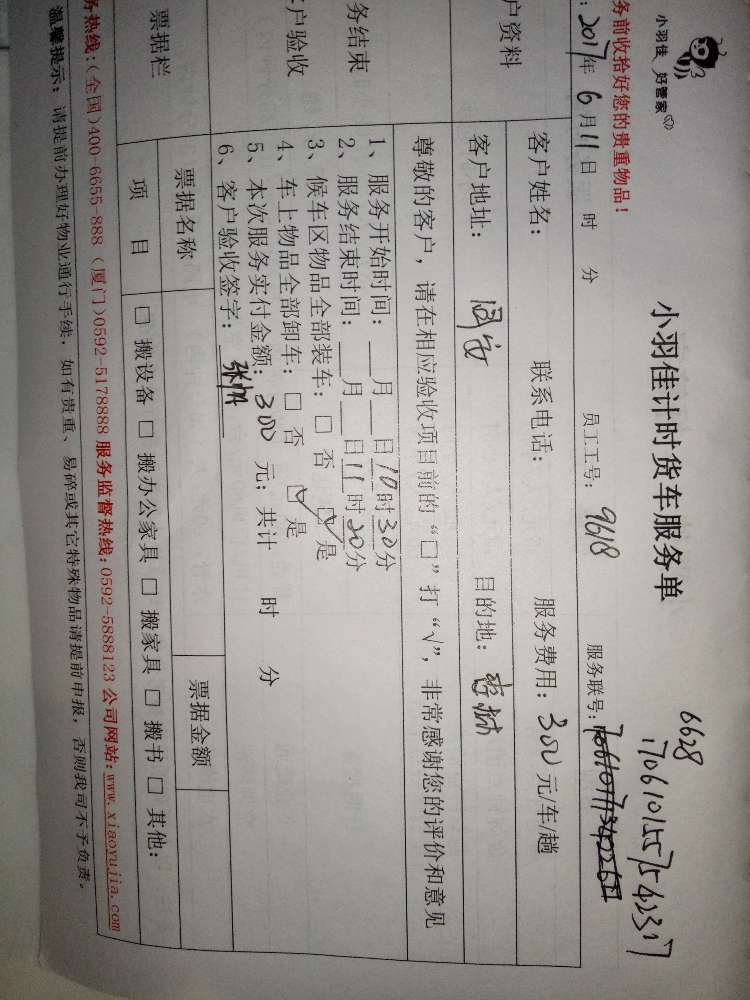 小羽佳 好管家
小羽佳计时货车服务单
6628
17061015575423 17
务前收拾好您的贵重物品！
: 2017年 6月11日 时 分 员工工号: 9618 服务联号:
户资料
客户姓名: 联系电话: 服务费用: 300 元/车/趟
客户地址: 同安 目的地: 杏林
尊敬的客户，请在相应验收项目前的“□”打“√”，非常感谢您的评价和意见
务结束
户验收
1、服务开始时间: 月 日10时30分
2、服务结束时间: 月 日11时20分
3、候车区物品全部装车: □ 否 ☑ 是
4、车上物品全部卸车: □ 否 ☑ 是
5、本次服务实付金额: 300 元; 共计 时 分
6、客户验收签字:
票据栏
票据名称 票据金额
项 目 □ 搬设备 □ 搬办公家具 □ 搬家具 □ 搬书 □ 其他:
务热线:(全国)400-6655-888 (厦门)0592-5178888 服务监督热线:0592-5888123 公司网站:www.xiaoyujia.com
温馨提示: 请提前办理好物业通行手续，如有贵重、易碎或其它特殊物品请提前申报，否则我司不予负责。